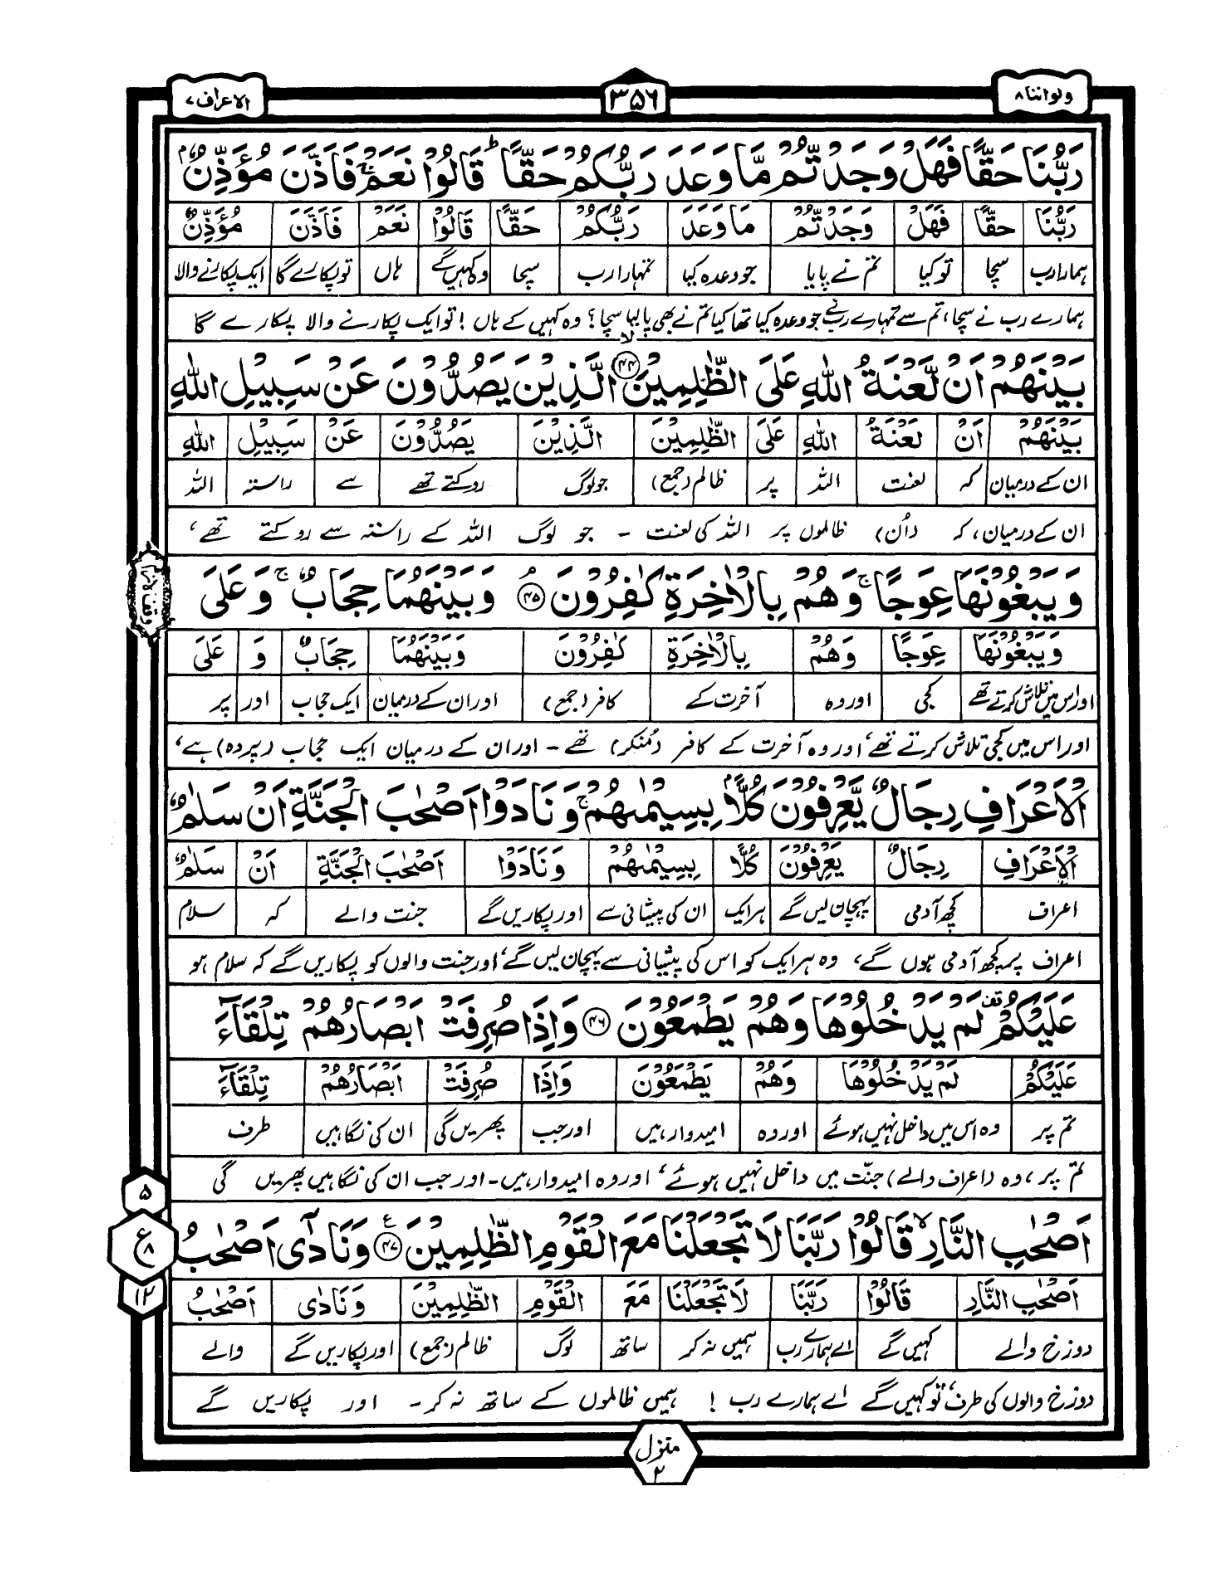 ولواننا ۸
۳۵۶
الاعراف ۷
رَبُّنَا حَقًّا فَهَلْ وَجَدْتُّمْ مَّا وَعَدَ رَبُّكُمْ حَقًّا ؕ قَالُوْا نَعَمْ ۚ فَاَذَّنَ مُؤَذِّنٌۢ
رَبُّنَا حَقًّا فَهَلْ وَجَدْتُّمْ مَا وَعَدَ رَبُّكُمْ حَقًّا قَالُوْا نَعَمْ فَاَذَّنَ مُؤَذِّنٌ
ہمارا رب سچا تو کیا تم نے پایا جو وعدہ کیا تمہارا رب سچا وہ کہیں گے ہاں تو پکارے گا ایک پکارنے والا
ہمارے رب نے سچا، تم سے تمہارے رب نے جو وعدہ کیا تھا کیا تم نے بھی پا لیا سچا؟ وہ کہیں گے ہاں! تو ایک پکارنے والا پکارے گا
بَيْنَهُمْ اَنْ لَّعْنَةُ اللهِ عَلَى الظّٰلِمِيْنَ ۙ﴿۴۴﴾ الَّذِيْنَ يَصُدُّوْنَ عَنْ سَبِيْلِ اللهِ
بَيْنَهُمْ اَنْ لَعْنَةُ اللهِ عَلَى الظّٰلِمِيْنَ الَّذِيْنَ يَصُدُّوْنَ عَنْ سَبِيْلِ اللهِ
ان کے درمیان کہ لعنت اللہ پر ظالم (جمع) جو لوگ روکتے تھے سے راستہ اللہ
ان کے درمیان، کہ (اُن) ظالموں پر اللہ کی لعنت - جو لوگ اللہ کے راستہ سے روکتے تھے،
وَيَبْغُوْنَهَا عِوَجًا ۚ وَهُمْ بِالْاٰخِرَةِ كٰفِرُوْنَ ۘ﴿۴۵﴾ وَبَيْنَهُمَا حِجَابٌ ۚ وَعَلَى
وَيَبْغُوْنَهَا عِوَجًا وَهُمْ بِالْاٰخِرَةِ كٰفِرُوْنَ وَبَيْنَهُمَا حِجَابٌ وَ عَلَى
اور اس میں تلاش کرتے تھے کجی اور وہ آخرت کے کافر (جمع) اور ان کے درمیان ایک حجاب اور پر
اور اس میں کجی تلاش کرتے تھے، اور وہ آخرت کے کافر (مُنکر) تھے - اور ان کے درمیان ایک حجاب (پردہ) ہے،
الْاَعْرَافِ رِجَالٌ يَّعْرِفُوْنَ كُلًّاۢ بِسِيْمٰىهُمْ ۚ وَنَادَوْا اَصْحٰبَ الْجَنَّةِ اَنْ سَلٰمٌ
الْاَعْرَافِ رِجَالٌ يَعْرِفُوْنَ كُلًّا بِسِيْمٰىهُمْ وَنَادَوْا اَصْحٰبَ الْجَنَّةِ اَنْ سَلٰمٌ
اعراف کچھ آدمی پہچان لیں گے ہر ایک ان کی پیشانی سے اور پکاریں گے جنت والے کہ سلام
اعراف پر کچھ آدمی ہوں گے، وہ ہر ایک کو اس کی پیشانی سے پہچان لیں گے، اور جنت والوں کو پکاریں گے کہ سلام ہو
عَلَيْكُمْ ۟ لَمْ يَدْخُلُوْهَا وَهُمْ يَطْمَعُوْنَ ﴿۴۶﴾ وَاِذَا صُرِفَتْ اَبْصَارُهُمْ تِلْقَآءَ
عَلَيْكُمْ لَمْ يَدْخُلُوْهَا وَهُمْ يَطْمَعُوْنَ وَاِذَا صُرِفَتْ اَبْصَارُهُمْ تِلْقَآءَ
تم پر وہ اس میں داخل نہیں ہوئے اور وہ امیدوار ہیں اور جب پھریں گی ان کی نگاہیں طرف
تم پر، وہ (اعراف والے) جنّت میں داخل نہیں ہوئے، اور وہ امیدوار ہیں - اور جب ان کی نگاہیں پھریں گی
اَصْحٰبِ النَّارِ ۙ قَالُوْا رَبَّنَا لَا تَجْعَلْنَا مَعَ الْقَوْمِ الظّٰلِمِيْنَ ﴿۴۷﴾ وَنَادٰٓى اَصْحٰبُ
اَصْحٰبِ النَّارِ قَالُوْا رَبَّنَا لَا تَجْعَلْنَا مَعَ الْقَوْمِ الظّٰلِمِيْنَ وَنَادٰى اَصْحٰبُ
دوزخ والے کہیں گے اے ہمارے رب ہمیں نہ کر ساتھ لوگ ظالم (جمع) اور پکاریں گے والے
دوزخ والوں کی طرف، تو کہیں گے اے ہمارے رب! ہمیں ظالموں کے ساتھ نہ کر - اور پکاریں گے
۵
ع ۸
۱۲
منزل ۲